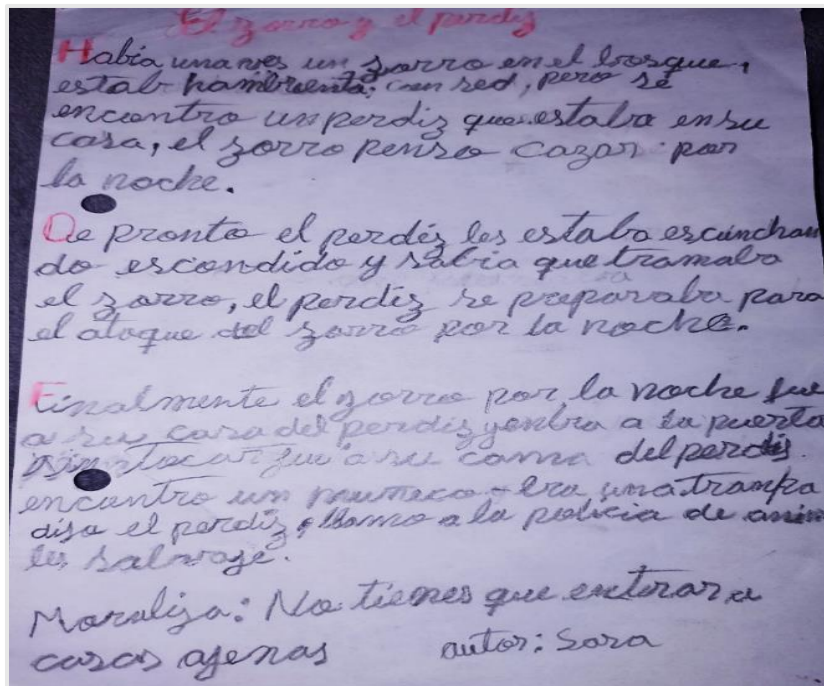 El zorro y el perdiz
Habia una ves un zorro en el bosque,
estab hambriento; con sed, pero se
encontro un perdiz que estaba en su
casa, el zorro penso cazar por
la noche.
De pronto el perdiz les estaba escunchan
do escondido y sabia que tramaba
el zorro, el perdiz se preparaba para
el ataque del zorro por la noche.
Finalmente el zorro por la noche fue
a su casa del perdiz y entra a la puerta
sin tocar fue a su cama del perdiz.
encontro un muñeco - Era una trampa
dijo el perdiz, llamo a la policia de anim
les salvaje.
Moralija: No tienes que entrar a
casas ajenas autor: Sara